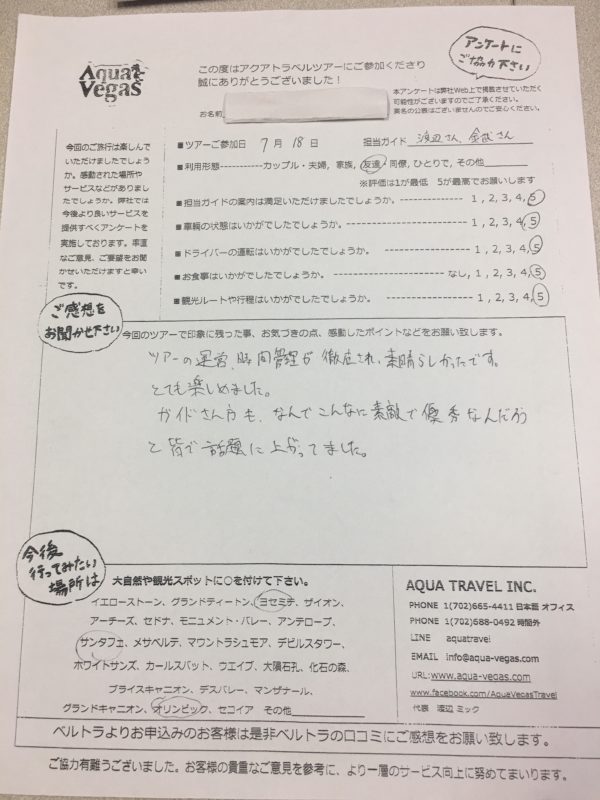 Aqua Vegas
この度はアクアトラベルツアーにご参加くださり
誠にありがとうございました！
アンケートに
ご協力下さい
本アンケートは弊社Web上で掲載させていただく
可能性がございますのでご了承ください。
実名の公表はございませんのでご安心ください。
お名前
今回のご旅行は楽しんで
いただけましたでしょう
か。感動された場所や
サービスなどがありまし
たでしょうか。弊社では
今後より良いサービスを
提供すべくアンケートを
実施しております。率直
なご意見、ご要望をお聞
かせいただけますと幸い
です。
■ツアーご参加日 7月18日 担当ガイド 渡辺さん、金武さん
■利用形態-----------カップル・夫婦, 家族, 友達・同僚, ひとりで, その他
※評価は1が最低 5が最高でお願いします
■担当ガイドの案内は満足いただけましたでしょうか。 1, 2, 3, 4, 5
■車輌の状態はいかがでしたでしょうか。 1, 2, 3, 4, 5
■ドライバーの運転はいかがでしたでしょうか。 1, 2, 3, 4, 5
■お食事はいかがでしたでしょうか。 なし, 1, 2, 3, 4, 5
■観光ルートや行程はいかがでしたでしょうか。 1, 2, 3, 4, 5
ご感想を
お聞かせ下さい
今回のツアーで印象に残った事、お気づきの点、感動したポイントなどをお願い致します。
ツアーの運営、時間管理が徹底され、素晴らしかったです。
とても楽しめました。
ガイドさん方も、なんでこんなに素敵で優秀なんだろう
と皆で話題に上がってました。
今後
行ってみたい
場所は
大自然や観光スポットに○を付けて下さい。
イエローストーン、グランドティートン、ヨセミテ、ザイオン、
アーチーズ、セドナ、モニュメント・バレー、アンテロープ、
サンタフェ、メサベルデ、マウントラシュモア、デビルスタワー、
ホワイトサンズ、カールスバット、ウエイブ、大隕石孔、化石の森、
ブライスキャニオン、デスバレー、マンザナール、
グランドキャニオン、オリンピック、セコイア その他
AQUA TRAVEL INC.
PHONE 1(702)665-4411 日本語 オフィス
PHONE 1(702)688-0492 時間外
LINE aquatravel
EMAIL info@aqua-vegas.com
URL:www.aqua-vegas.com
www.facebook.com/AquaVegasTravel
代表 渡辺 ミック
ベルトラよりお申込みのお客様は是非ベルトラの口コミにご感想をお願い致します。
ご協力有難うございました。お客様の貴重なご意見を参考に、より一層のサービス向上に努めてまいります。